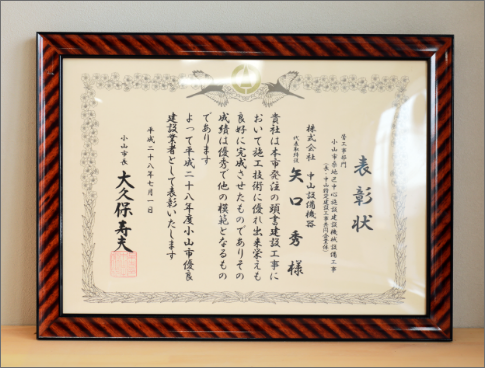 表彰状
管工事部門
小山市
建設機械設備工事
株式会社 中山設備機器
代表取締役
矢口 秀 様
貴社は本市発注の頭書建設工事に
おいて施工技術に優れ出来栄えも
良好に完成させたものでありその
成績は優秀で他の模範となるもの
であります
よって平成二十八年度小山市優良
建設業者として表彰いたします
平成二十八年七月一日
小山市長 大久保寿夫